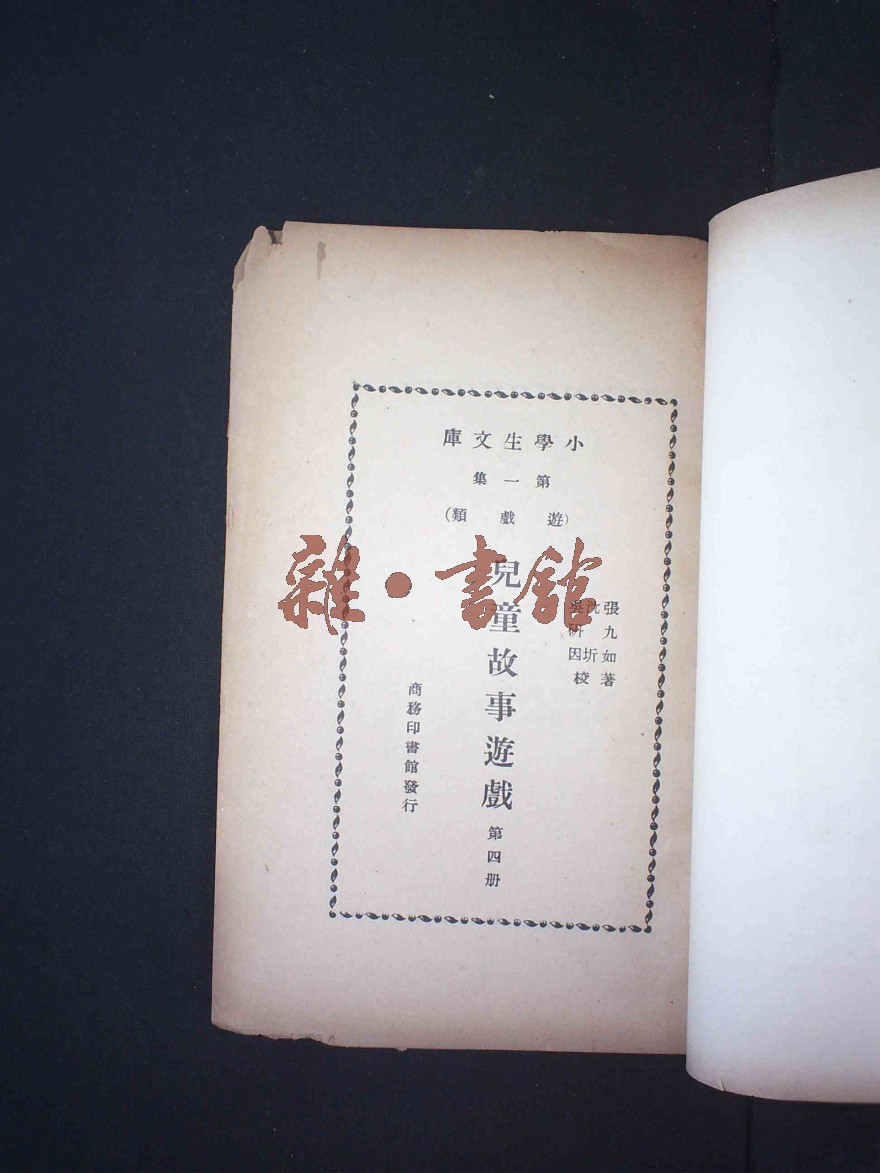 小學生文庫
第一集
(遊戲類)
張九如著
沈圻
吳研因校
兒童故事遊戲 第四册
商務印書館發行
雜·書館